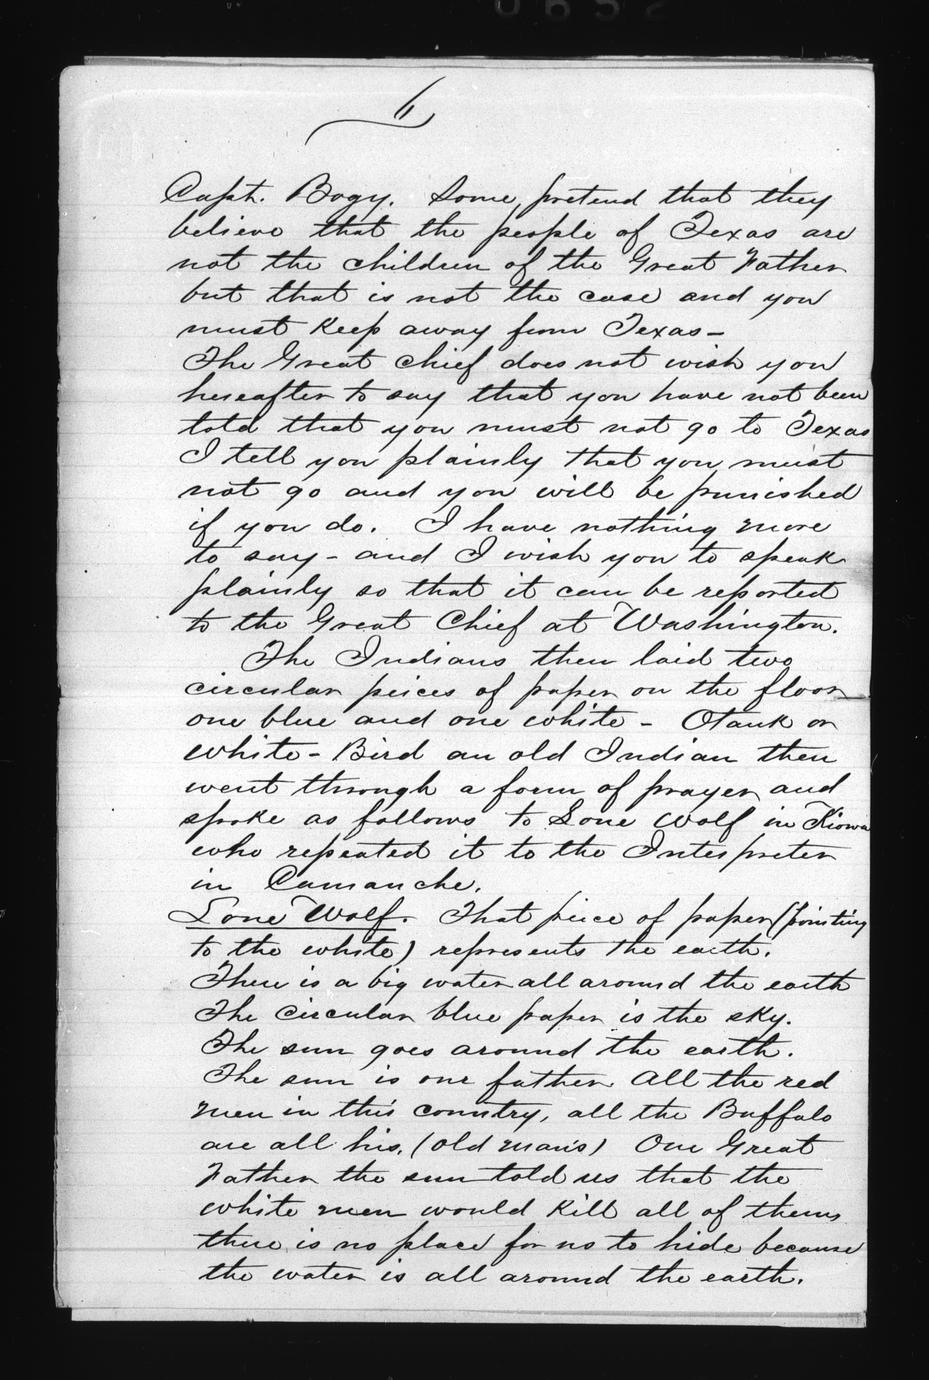 6
Capt. Bogy. Some pretend that they
believe that the people of Texas are
not the children of the Great Father
but that is not the case and you
must keep away from Texas -
The Great chief does not wish you
hereafter to say that you have not been
told that you must not go to Texas
I tell you plainly that you must
not go and you will be punished
if you do. I have nothing more
to say - and I wish you to speak
plainly so that it can be reported
to the Great Chief at Washington.
The Indians then laid two
circular peices of paper on the floor
one blue and one white - Otank or
White-Bird an old Indian then
went through a form of prayer and
spoke as follows to Lone Wolf in Kiowa
who repeated it to the Interpreter
in Camanche.
Lone Wolf. That peice of paper (pointing
to the white) represents the earth.
There is a big water all around the earth
The circular blue paper is the sky.
The sun goes around the earth.
The sun is our father All the red
men in this country, all the Buffalo
are all his. (old man's) Our Great
Father the sun told us that the
white men would kill all of them
there is no place for us to hide because
the water is all around the earth.